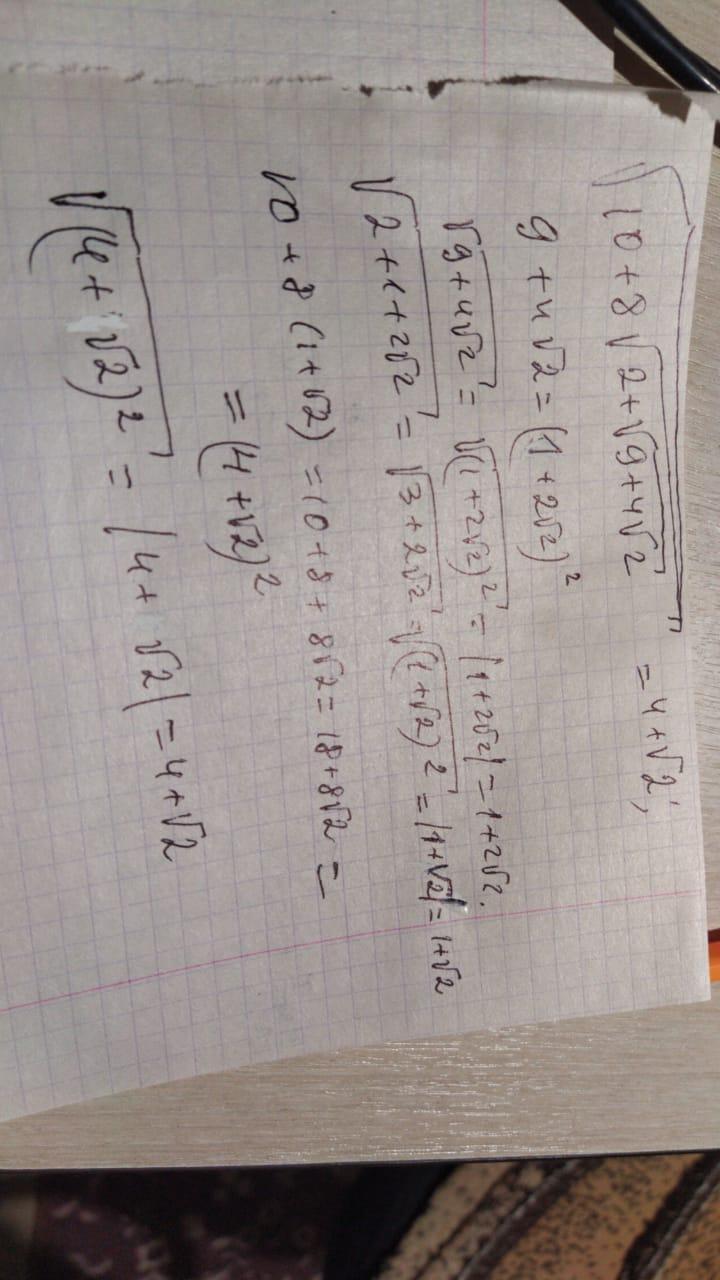 √(10+8√(2+√(9+4√2))) = 4+√2;
9+4√2 = (1+2√2)²
√(9+4√2) = √((1+2√2)²) = |1+2√2| = 1+2√2.
√(2+1+2√2) = √(3+2√2) = √((1+√2)²) = |1+√2| = 1+√2
10+8(1+√2) = 10+8+8√2 = 18+8√2 =
= (4+√2)²
√((4+√2)²) = |4+√2| = 4+√2